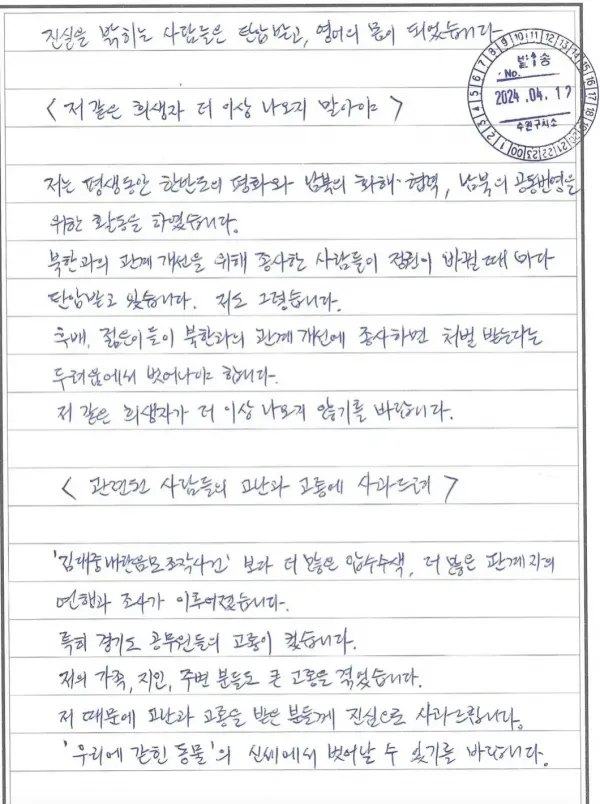 진실을 밝히는 사람들은 탄압 받고, 영어의 몸이 되었습니다.
발송
No.
2024.04.17
수원구치소
< 저 같은 희생자 더 이상 나오지 말아야 >
저는 평생동안 한반도의 평화와 남북의 화해·협력, 남북의 공동번영을
위한 활동을 하였습니다.
북한과의 관계 개선을 위해 종사한 사람들이 정권이 바뀔 때 마다
탄압받고 있습니다. 저도 그렇습니다.
후배, 젊은이들이 북한과의 관계 개선에 종사하면 처벌 받는다는
두려움에서 벗어나야 합니다.
저 같은 희생자가 더 이상 나오지 않기를 바랍니다.
< 관련된 사람들의 고난과 고통에 사과드려 >
'김대중내란음모조작사건' 보다 더 많은 압수수색, 더 많은 관계자의
연행과 조사가 이루어졌습니다.
특히 경기도 공무원들의 고통이 컸습니다.
저의 가족, 지인, 주변 분들도 큰 고통을 겪었습니다.
저 때문에 고난과 고통을 받은 분들께 진실으로 사과드립니다.
'우리에 갇힌 동물'의 신세에서 벗어날 수 있기를 바랍니다.